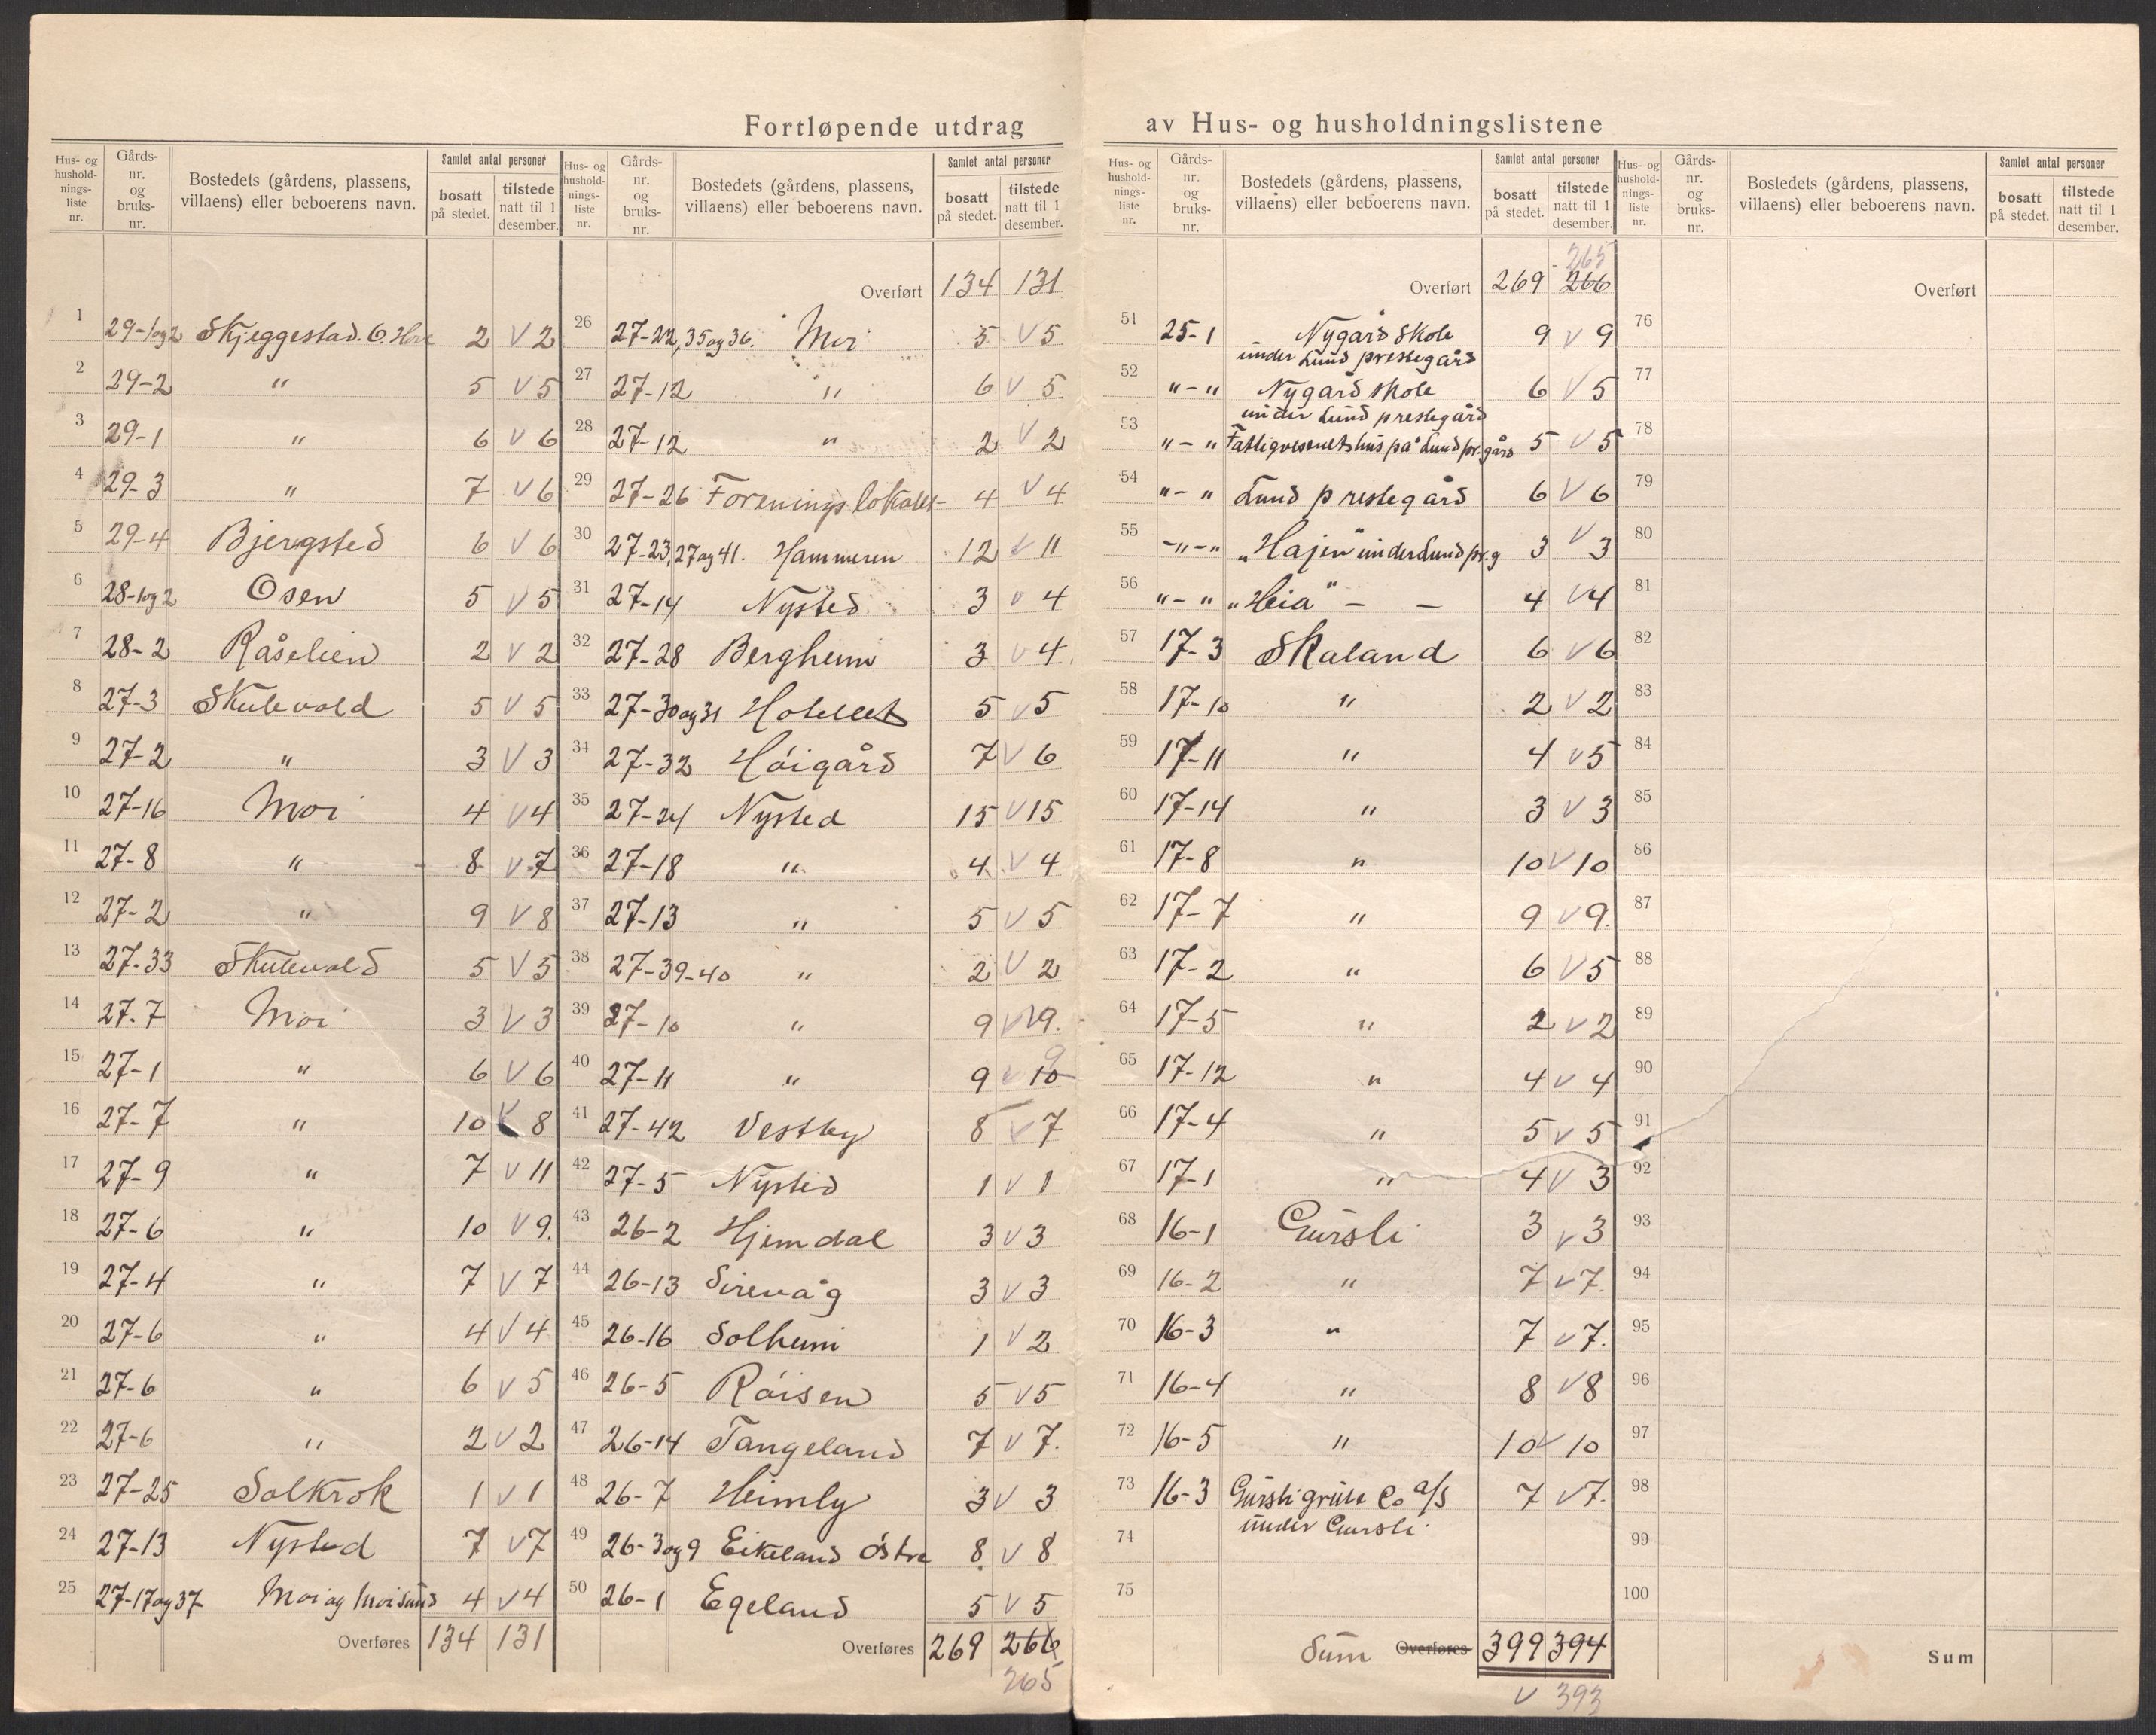 Fortløpende utdrag av Hus- og husholdningslistene
Hus- og hushold-nings-liste nr. Gårds-nr. og bruks-nr. Bostedets (gårdens, plassens, villaens) eller beboerens navn. Samlet antal personer bosatt på stedet. tilstede natt til 1 desember.
1 29-1og2 Skjeggestad. 2 V 2
2 29-2 " 5 V 5
3 29-1 " 6 V 6
4 29-3 " 7 V 6
5 29-4 Bjergsted 6 V 6
6 28-1og2 Osen 5 V 5
7 28-2 Råselien 2 V 2
8 27-3 Skulevold 5 V 5
9 27-2 " 3 V 3
10 27-16 Moi 4 V 4
11 27-8 " 8 V 7
12 27-2 " 9 V 8
13 27-33 Skulevold 5 V 5
14 27-7 Moi 3 V 3
15 27-1 " 6 V 6
16 27-7 " 10 V 8
17 27-9 " 7 V 11
18 27-6 " 10 V 9.
19 27-4 " 7 V 7
20 27-6 " 4 V 4
21 27-6 " 6 V 5
22 27-6 " 2 V 2
23 27-25 Solkrok 1 V 1
24 27-13 Nysted 7 V 7
25 27-17og37 Moi og Moisund 4 V 4
Overføres 134 131
Hus- og hushold-nings-liste nr. Gårds-nr. og bruks-nr. Bostedets (gårdens, plassens, villaens) eller beboerens navn. Samlet antal personer bosatt på stedet. tilstede natt til 1 desember.
Overført 134 131
26 27-22,35og36. Moi 5 V 5
27 27-12 " 6 V 5
28 27-12 " 2 V 2
29 27-26 Foreningslokalet 4 V 4
30 27-23,27og41. Hammeren 12 V 11
31 27-14 Nysted 3 V 4
32 27-28 Bergheim 3 V 4.
33 27-30og31 Hotellet 5 V 5
34 27-32 Høigård 7 V 6
35 27-24 Nysted 15 V 15
36 27-18 " 4 V 4
37 27-13 " 5 V 5
38 27-39-40 " 2 V 2
39 27-10 " 9 V 9.
40 27-11 " 9 V 10 9
41 27-42 Vestby 8 V 7
42 27-5 Nysted 1 V 1
43 26-2 Hjemdal 3 V 3
44 26-13 Sirevåg 3 V 3
45 26-16 Solheim 1 V 2
46 26-5 Røisen 5 V 5
47 26-14 Tangeland 7 V 7.
48 26-7 Heimly 3 V 3
49 26-3og9 Eikeland østre 8 V 8
50 26-1 Egeland 5 V 5
Overføres 269 266
265
Hus- og hushold-nings-liste nr. Gårds-nr. og bruks-nr. Bostedets (gårdens, plassens, villaens) eller beboerens navn. Samlet antal personer bosatt på stedet. tilstede natt til 1 desember.
265
Overført 269 266
51 25-1 Nygård Skole 9 V 9
under Lund prestegård
52 "-" Nygård skole 6 V 5
under Lund prestegård
53 "-" Fattigvesenets hus på Lund pr.gård 5 V 5
54 "-" Lund prestegård 6 V 6
55 -"-" "Hajen" under Lund pr.g 3 V 3
56 "-" "Heia" - - 4 V 4
57 17-3 Skaland 6 V 6
58 17-10 " 2 V 2
59 17-11 " 4 V 5
60 17-14 " 3 V 3
61 17-8 " 10 V 10
62 17-7 " 9 V 9.
63 17-2 " 6 V 5
64 17-5 " 2 V 2
65 17-12 " 4 V 4
66 17-4 " 5 V 5
67 17-1 " 4 V 3
68 16-1 Gursli 3 V 3
69 16-2 " 7 V 7.
70 16-3 " 7 V 7.
71 16-4 " 8 V 8
72 16-5 " 10 V 10
73 16-3 Gursli grube Co a/s 7 V 7.
under Gursli.
74
75
Sum Overføres 399 394
V 393
Hus- og hushold-nings-liste nr. Gårds-nr. og bruks-nr. Bostedets (gårdens, plassens, villaens) eller beboerens navn. Samlet antal personer bosatt på stedet. tilstede natt til 1 desember.
Overført
76
77
78
79
80
81
82
83
84
85
86
87
88
89
90
91
92
93
94
95
96
97
98
99
100
Sum